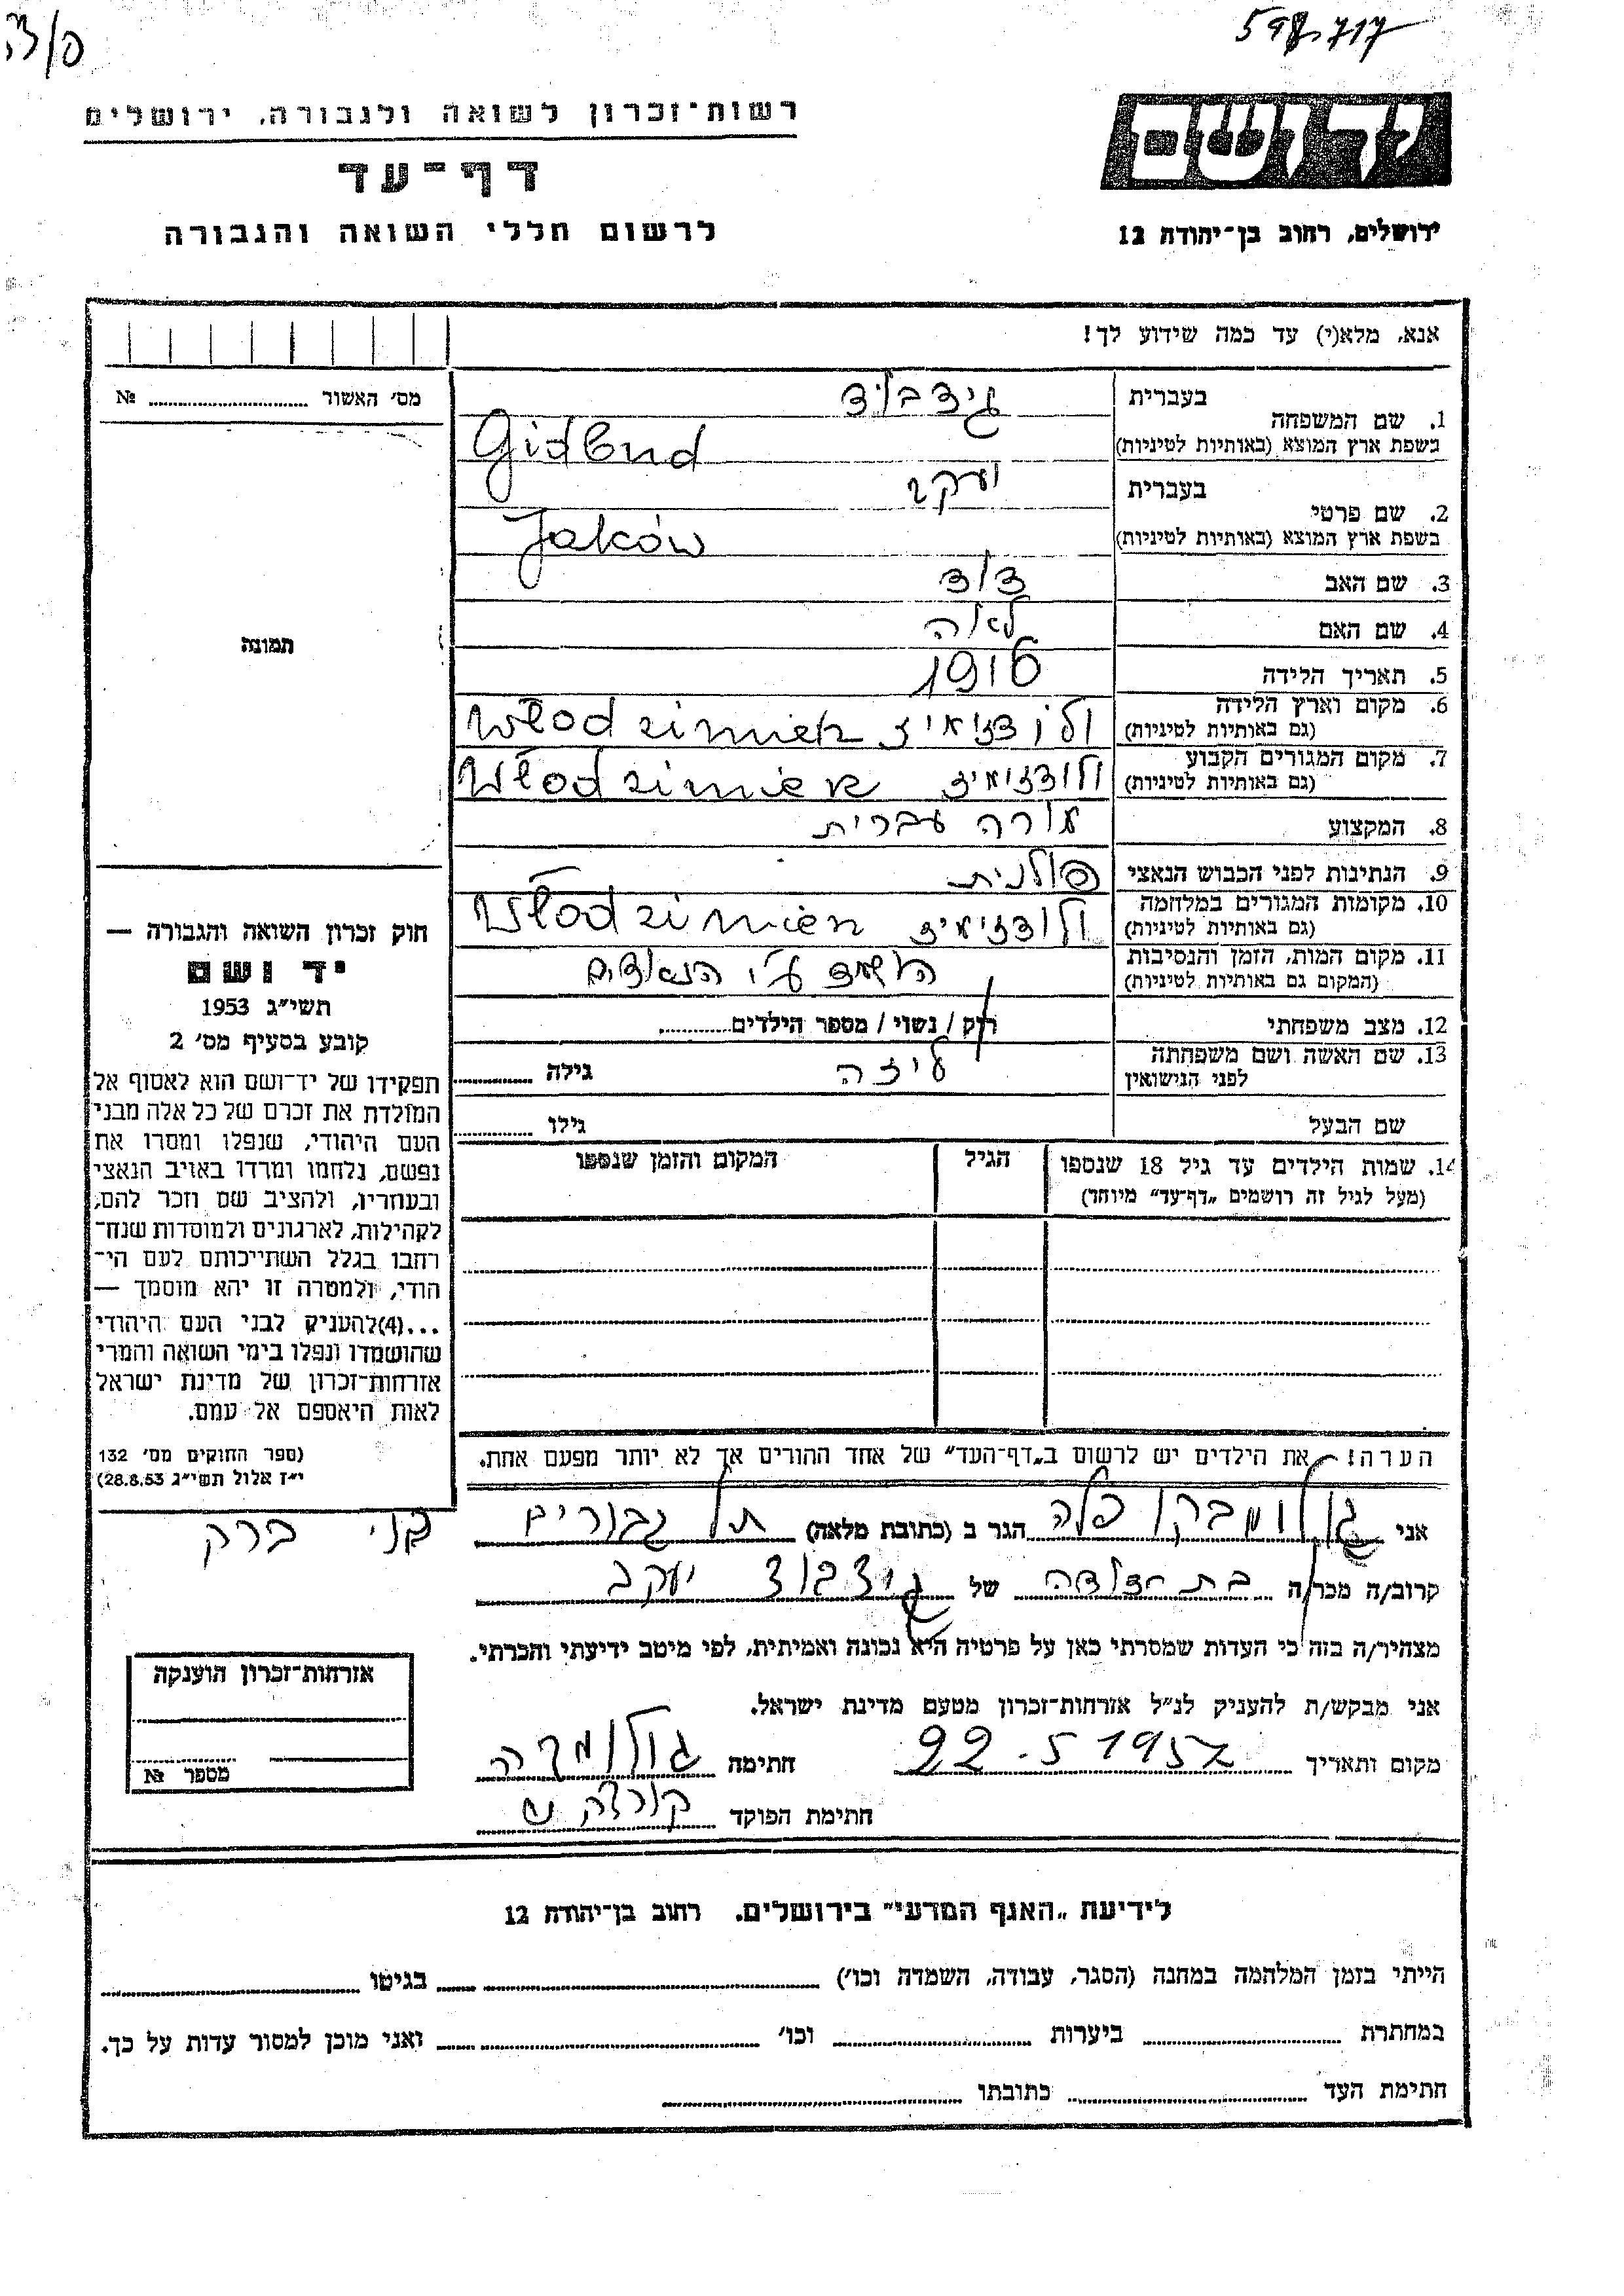 598.717
פ/צה
רשות-זכרון לשואה ולגבורה, ירושלים
דף-עד
לרשום חללי השואה והגבורה
ידושם
ירושלים, רחוב בן-יהודה 12
אנא, מלא(י) עד כמה שידוע לך!
מס' האשור ........ №
1. שם המשפחה בעברית גידבוד
בשפת ארץ המוצא (באותיות לטיניות) Gidbud
2. שם פרטי בעברית יעקב
בשפת ארץ המוצא (באותיות לטיניות) Jaków
3. שם האב דוד
4. שם האם לאה
5. תאריך הלידה 1916
6. מקום וארץ הלידה (גם באותיות לטיניות) ולודזימיז
7. מקום המגורים הקבוע (גם באותיות לטיניות) ולודזימיז
8. המקצוע מורה עברית
9. הנתינות לפני הכבוש הנאצי פולנית
10. מקומות המגורים במלחמה (גם באותיות לטיניות) ולודזימיז
11. מקום המות, הזמן והנסיבות (המקום גם באותיות לטיניות) הושמד ע"י הנאצים
12. מצב משפחתי רוק / נשוי / מספר הילדים........
13. שם האשה ושם משפחתה לפני הנישואין ליזה גילה ........
שם הבעל גילו ........
14. שמות הילדים עד גיל 18 שנספו (מעל לגיל זה רושמים „דף-עד" מיוחד) הגיל המקום והזמן שנספו
הערה: את הילדים יש לרשום ב„דף-העד" של אחד ההורים אך לא יותר מפעם אחת.
תמונה
חוק זכרון השואה והגבורה —
יד ושם
תשי"ג 1953
קובע בסעיף מס' 2
תפקידו של יד-ושם הוא לאסוף אל
המולדת את זכרם של כל אלה מבני
העם היהודי, שנפלו ומסרו את
נפשם, נלחמו ומרדו באויב הנאצי
ובעוזריו, ולהציב שם וזכר להם,
לקהילות, לארגונים ולמוסדות שנח-
רחבו בגלל השתייכותם לעם הי-
הודי, ולמטרה זו יהא מוסמך —
...(4)להעניק לבני העם היהודי
שהושמדו ונפלו בימי השואה והמרי
אזרחות-זכרון של מדינת ישראל
לאות היאספם אל עמם.
(ספר החוקים מס' 132
י"ז אלול תשי"ג 28.8.53)
אני פלה הגר ב (כתובת מלאה) תל גבורים בני ברק
קרוב/ה מכר/ה בת-דודה של גידבוד יעקב
מצהיר/ה בזה כי העדות שמסרתי כאן על פרטיה היא נכונה ואמיתית, לפי מיטב ידיעתי והכרתי.
אני מבקש/ת להעניק לנ"ל אזרחות-זכרון מטעם מדינת ישראל.
מקום ותאריך 22.5 1957 חתימה
חתימת הפוקד
אזרחות-זכרון הוענקה
מספר №
לידיעת „האגף המדעי" בירושלים. רחוב בן-יהודה 12
הייתי בזמן המלחמה במחנה (הסגר, עבודה, השמדה וכו') ........ בגיטו ........
במחתרת ........ ביערות ........ וכו' ........ ואני מוכן למסור עדות על כך.
חתימת העד ........ כתובתו ........